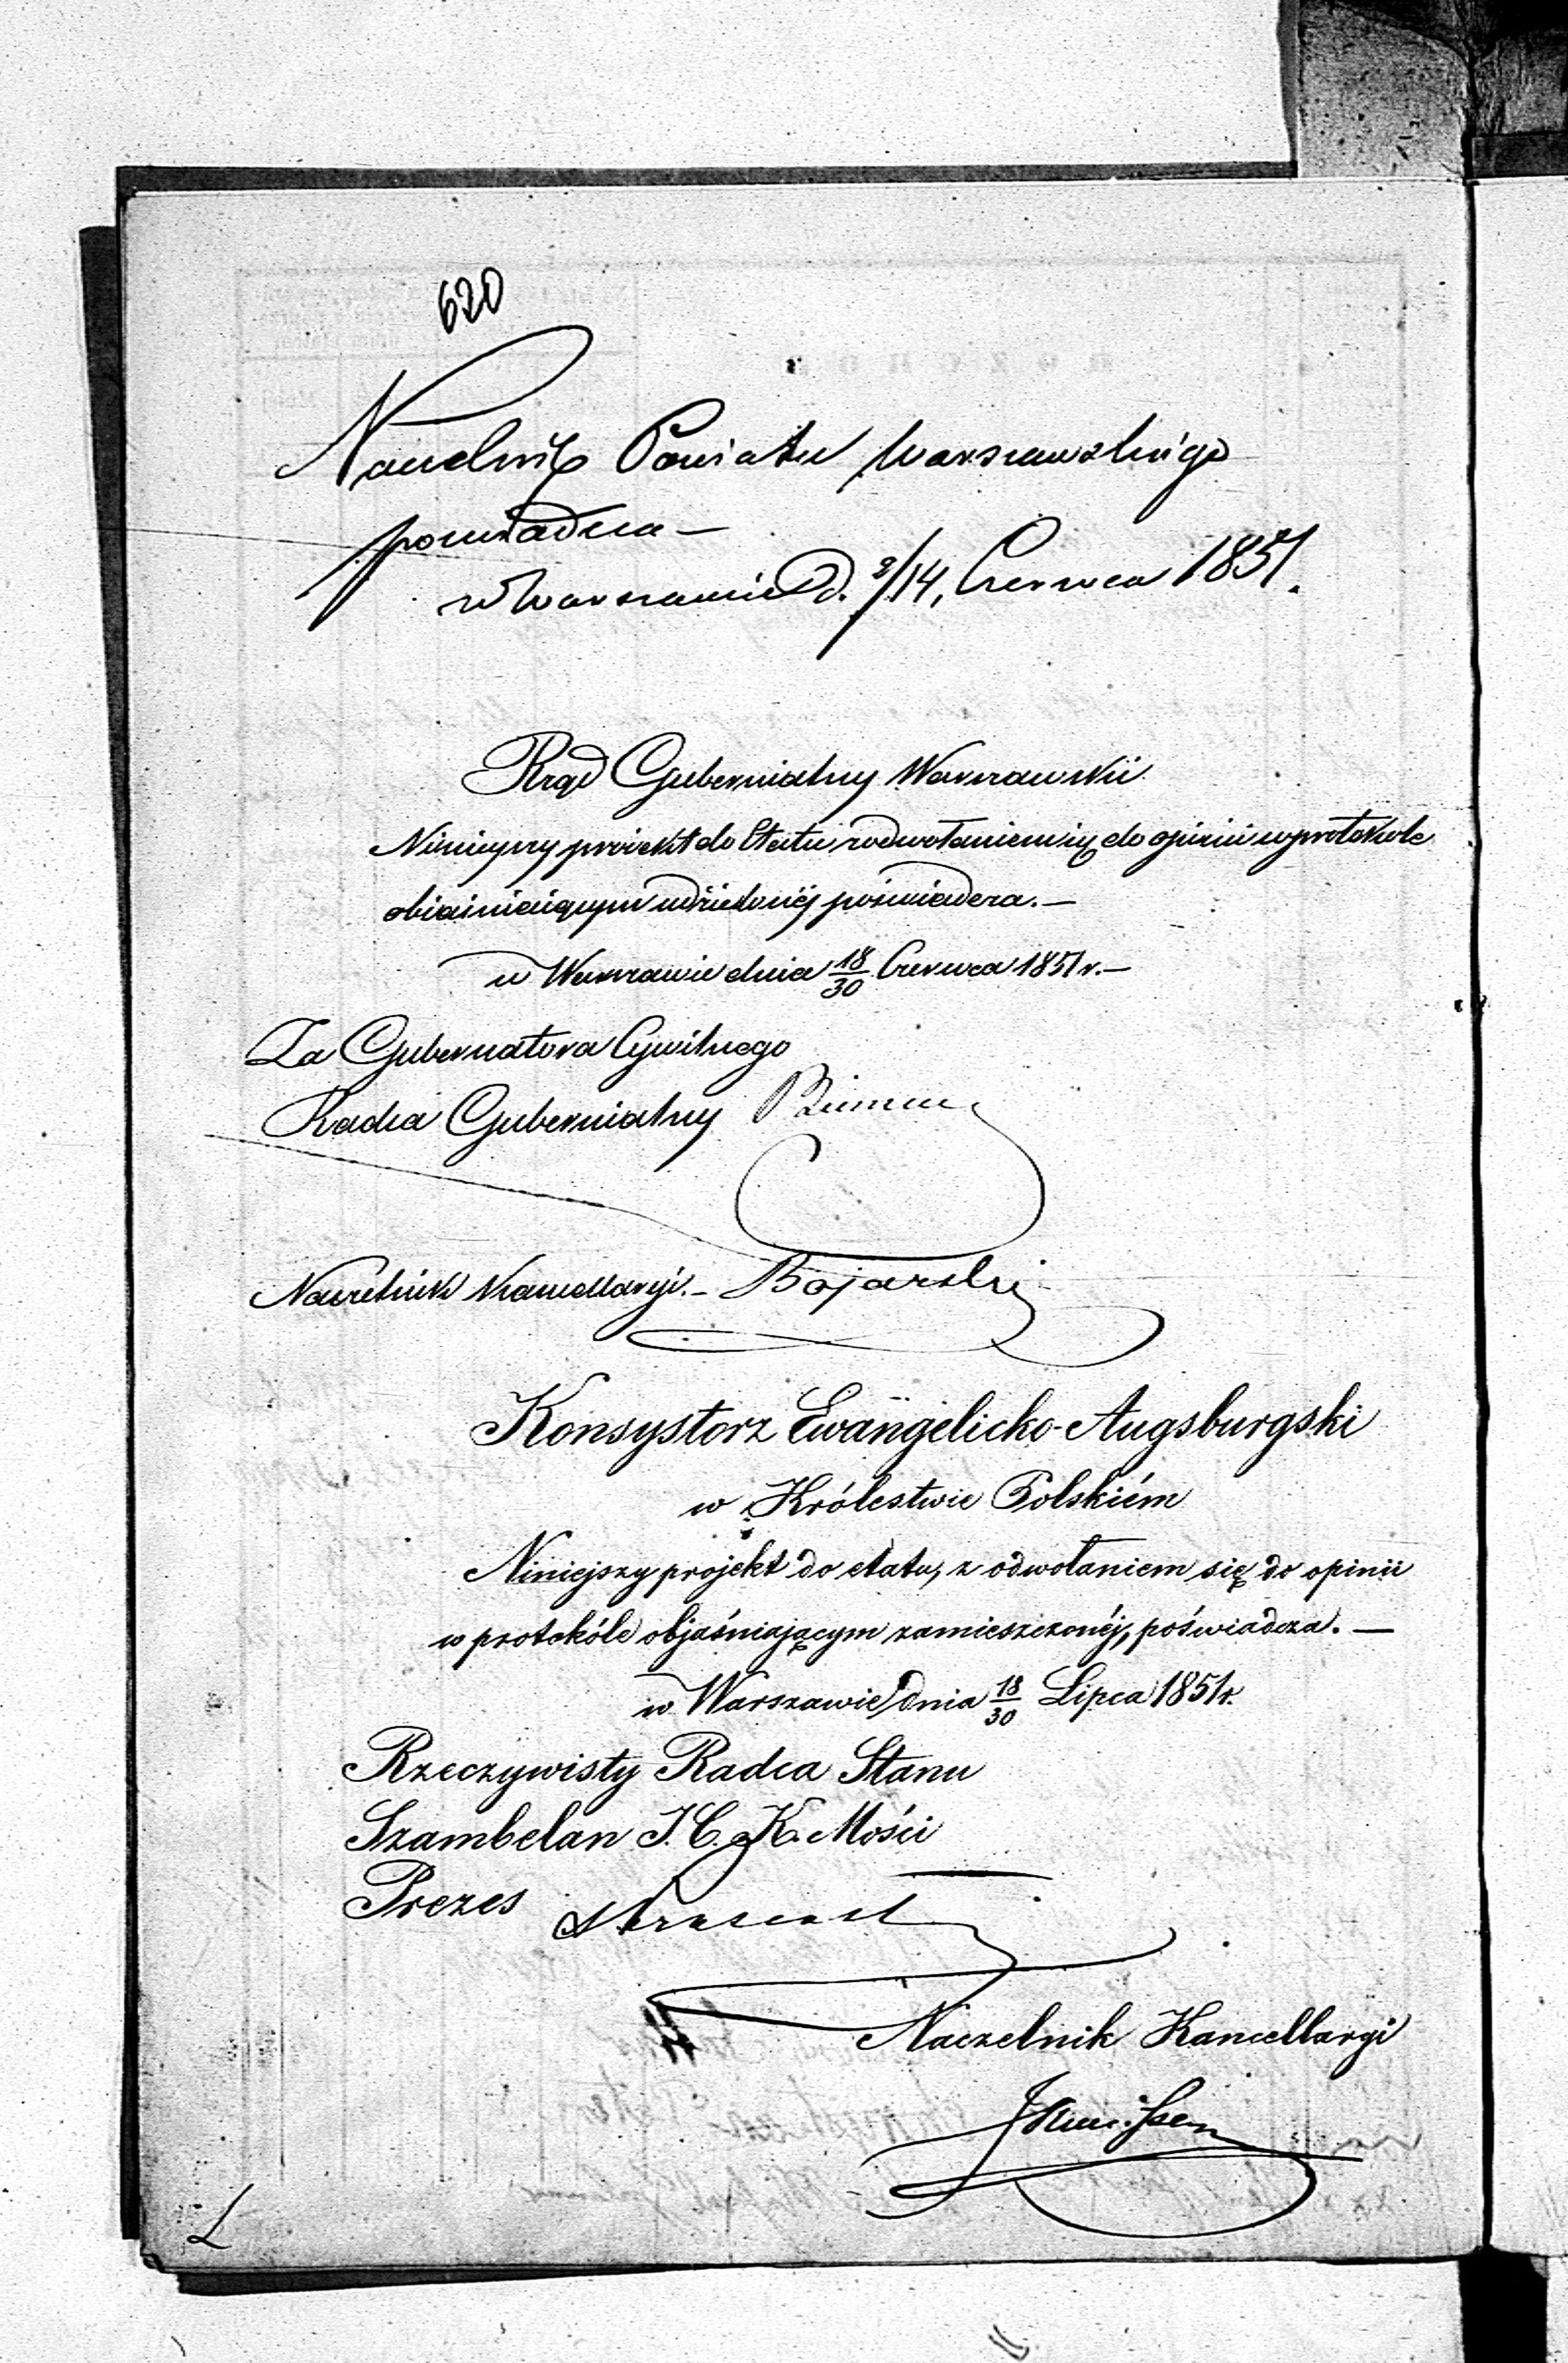 620
Naczelnik Powiatu Warszawskiego
poswiadcza —
w Warszawie d. 2/14, Czerwca 1851.
Rząd Gubernialny Warszawskii
Niniejszy proiekt do Etatu, z odwołaniem się do opinii w protokole
obiaśniaiącym udzielonéj poświadcza. —
w Warszawie dnia 18/30 Czerwca 1851 r. —
Za Gubernatora Cywilnego
Radca Gubernialny
Naczelnik Kancellaryi. — Bojarski
Konsystorz Ewangelicko-Augsburgski
w Królestwie Polskiém
Niniejszy projekt do etatu, z odwołaniem się do opinii
w protokóle objaśniającym zamieszczonéj, poświadcza. —
w Warszawie dnia 18/30 Lipca 1851 r.
Rzeczywisty Radca Stanu
Szambelan J. C. K. Mości
Prezes
Naczelnik Kancellaryi